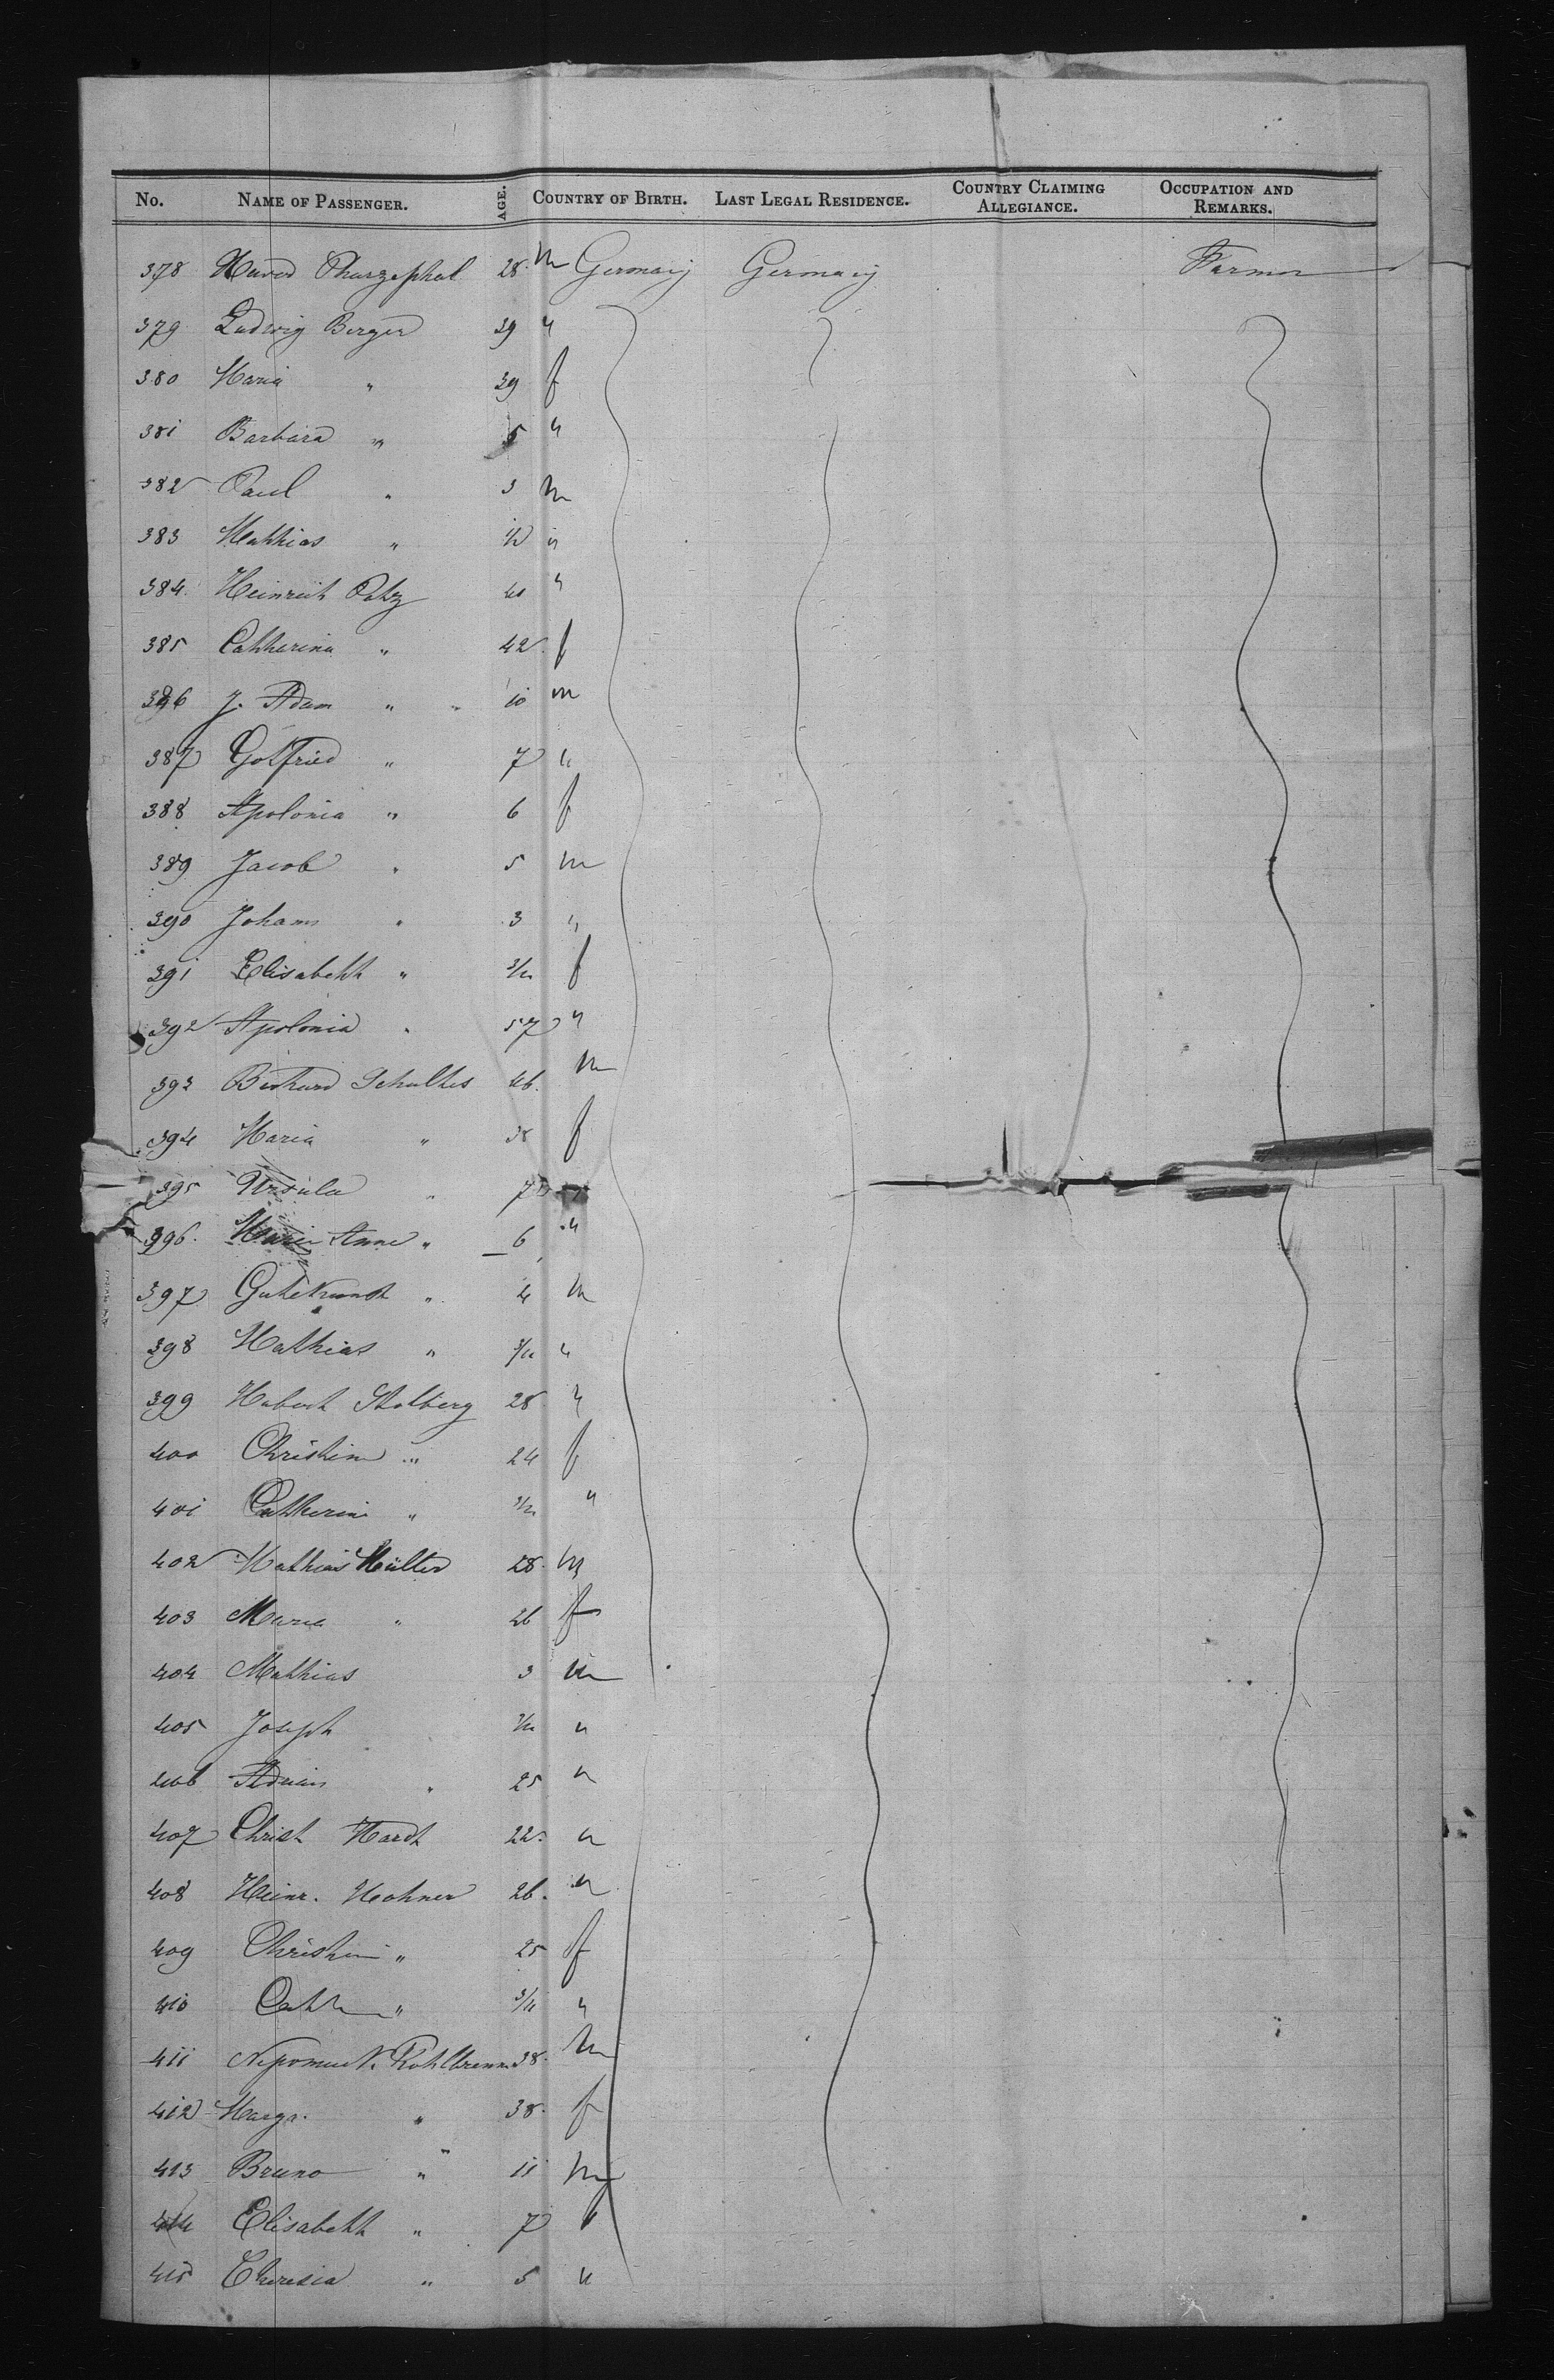 No. NAME OF PASSENGER. AGE. COUNTRY OF BIRTH. LAST LEGAL RESIDENCE. COUNTRY CLAIMING ALLEGIANCE. OCCUPATION AND REMARKS.
378 28 m Germany Germany Farmer
379 Ludwig Berger 39 "
380 Maria " 39 f
381 Barbara " 5 "
382 Paul " 3 m
383 Mathias " "
384 Heinrich 40 "
385 Catharina " 42 f
386 J. Adam " " 10 m
387 Gotfried " 7 "
388 Apolonia " 6 f
389 Jacob " 5 m
390 Johann " 3 "
391 Elisabeth " f
392 Apolonia " 57 "
393 Schultes 46 m
394 Maria " 38 f
395 Ursula " 7
396. Maria Anna " 6 "
397 " 4 m
398 Mathias " "
399 Hubert Stolberg 28 "
400 Christine " 24 f
401 Catherine " "
402 Mathias Müller 28 m
403 Maria " 26 f
404 Mathias 3 m
405 Joseph "
406 Adrian " 25 "
407 Christ Hardt 22 "
408 Heinr. Hohner 26 "
409 Christine " 25 f
410 Cath " "
411 Nepomuck 38 m
412 Marga. " 38 f
413 Bruno " 11 m
414 Elisabeth " 7 f
415 Theresia " 5 "